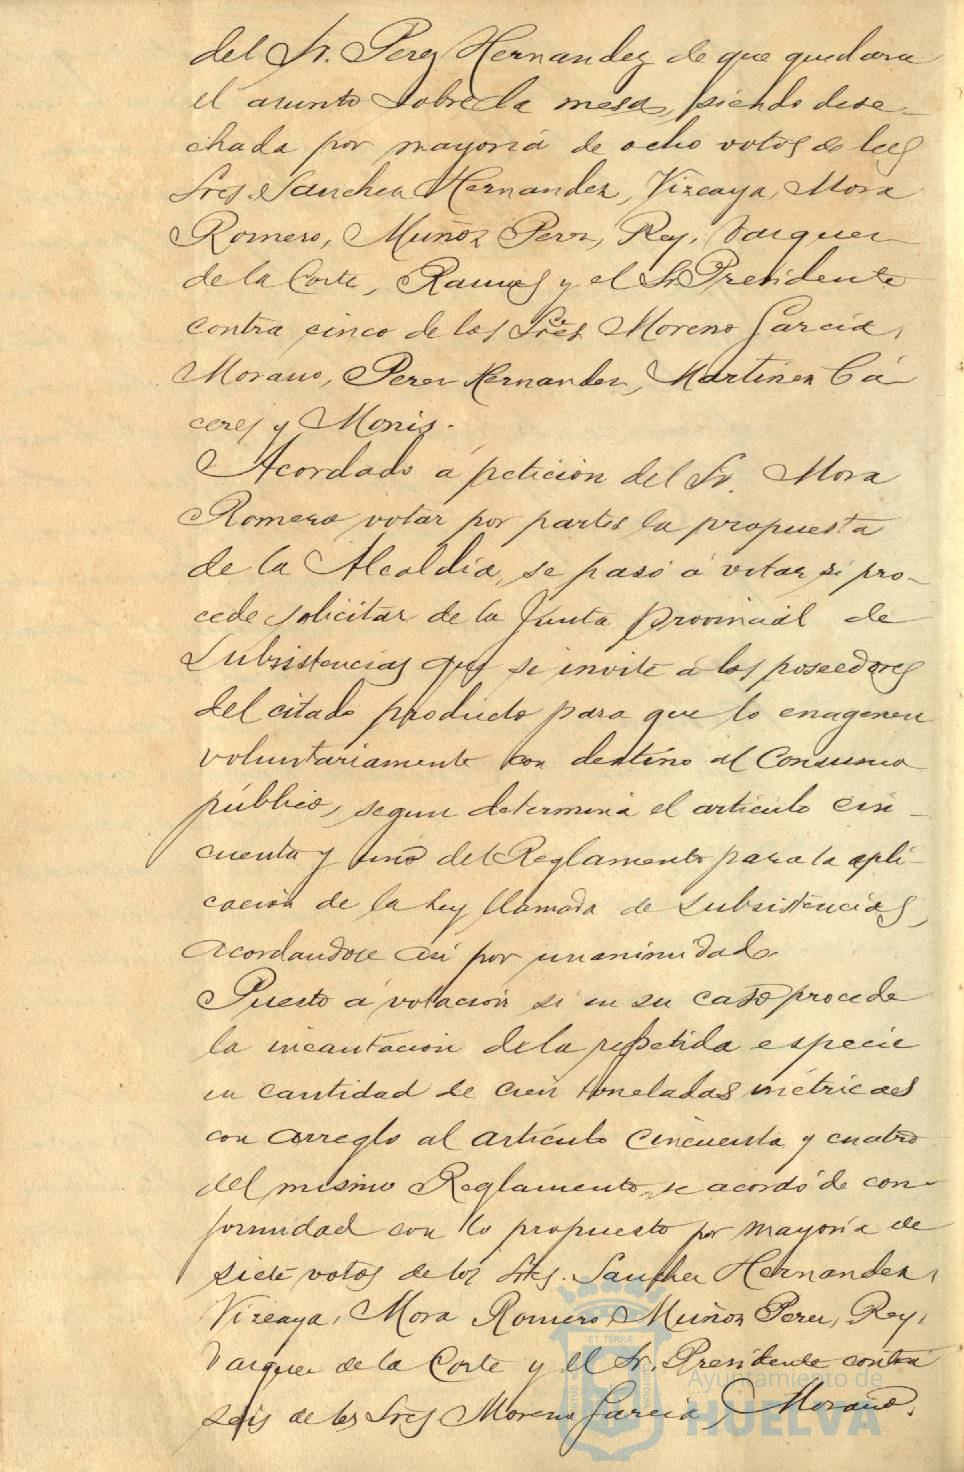 del Sr. Perez Hernandez de que quedara
el asunto sobre la mesa, siendo dese-
chada por mayoria de ocho votos de los
Sres. Sanchez Hernandez, Vizcaya, Mora
Romero, Muñoz Perez, Rey, Vazquez
de la Corte, Ramos y el Sr. Presidente
contra cinco de los Sres Moreno Garcia,
Morano, Perez Hernandez, Martinez Cá-
ceres y Monis.
Acordado á petición del Sr. Mora
Romero votar por partes la propuesta
de la Alcaldía, se pasó á votar si pro-
cede solicitar de la Junta provincial de
Subsistencias que se invite á los poseedores
del citado producto para que lo enagenen
voluntariamente con destino al Consumo
público, segun determina el articulo cin-
cuenta y uno del Reglamento para la apli-
cación de la ley llamada de Subsistencias,
acordandose asi por unanimidad.
Puesto á votación si en su caso procede
la incautacion de la repetida especie
en cantidad de cien toneladas métricas
con arreglo al artículo cincuenta y cuatro
del mismo Reglamento, se acordó de con-
formidad con lo propuesto por mayoría de
siete votos de los Sres. Sanchez Hernandez,
Vizcaya, Mora Romero, Muñoz Perez, Rey,
Vazquez de la Corte y el Sr. Presidente contra
seis de los Sres Moreno Garcia, Morano,
ET TERRÆ
Ayuntamiento de
HUELVA